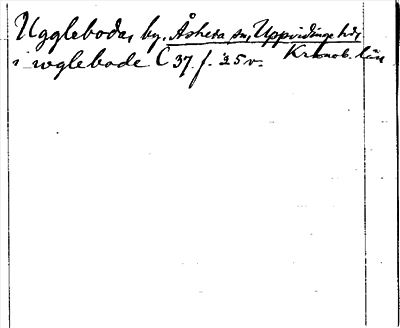 Uggleboda, by, Åsheda sn, Uppvidinge hd,
Kronob. län
i wglebode C 37. f. 25 v.